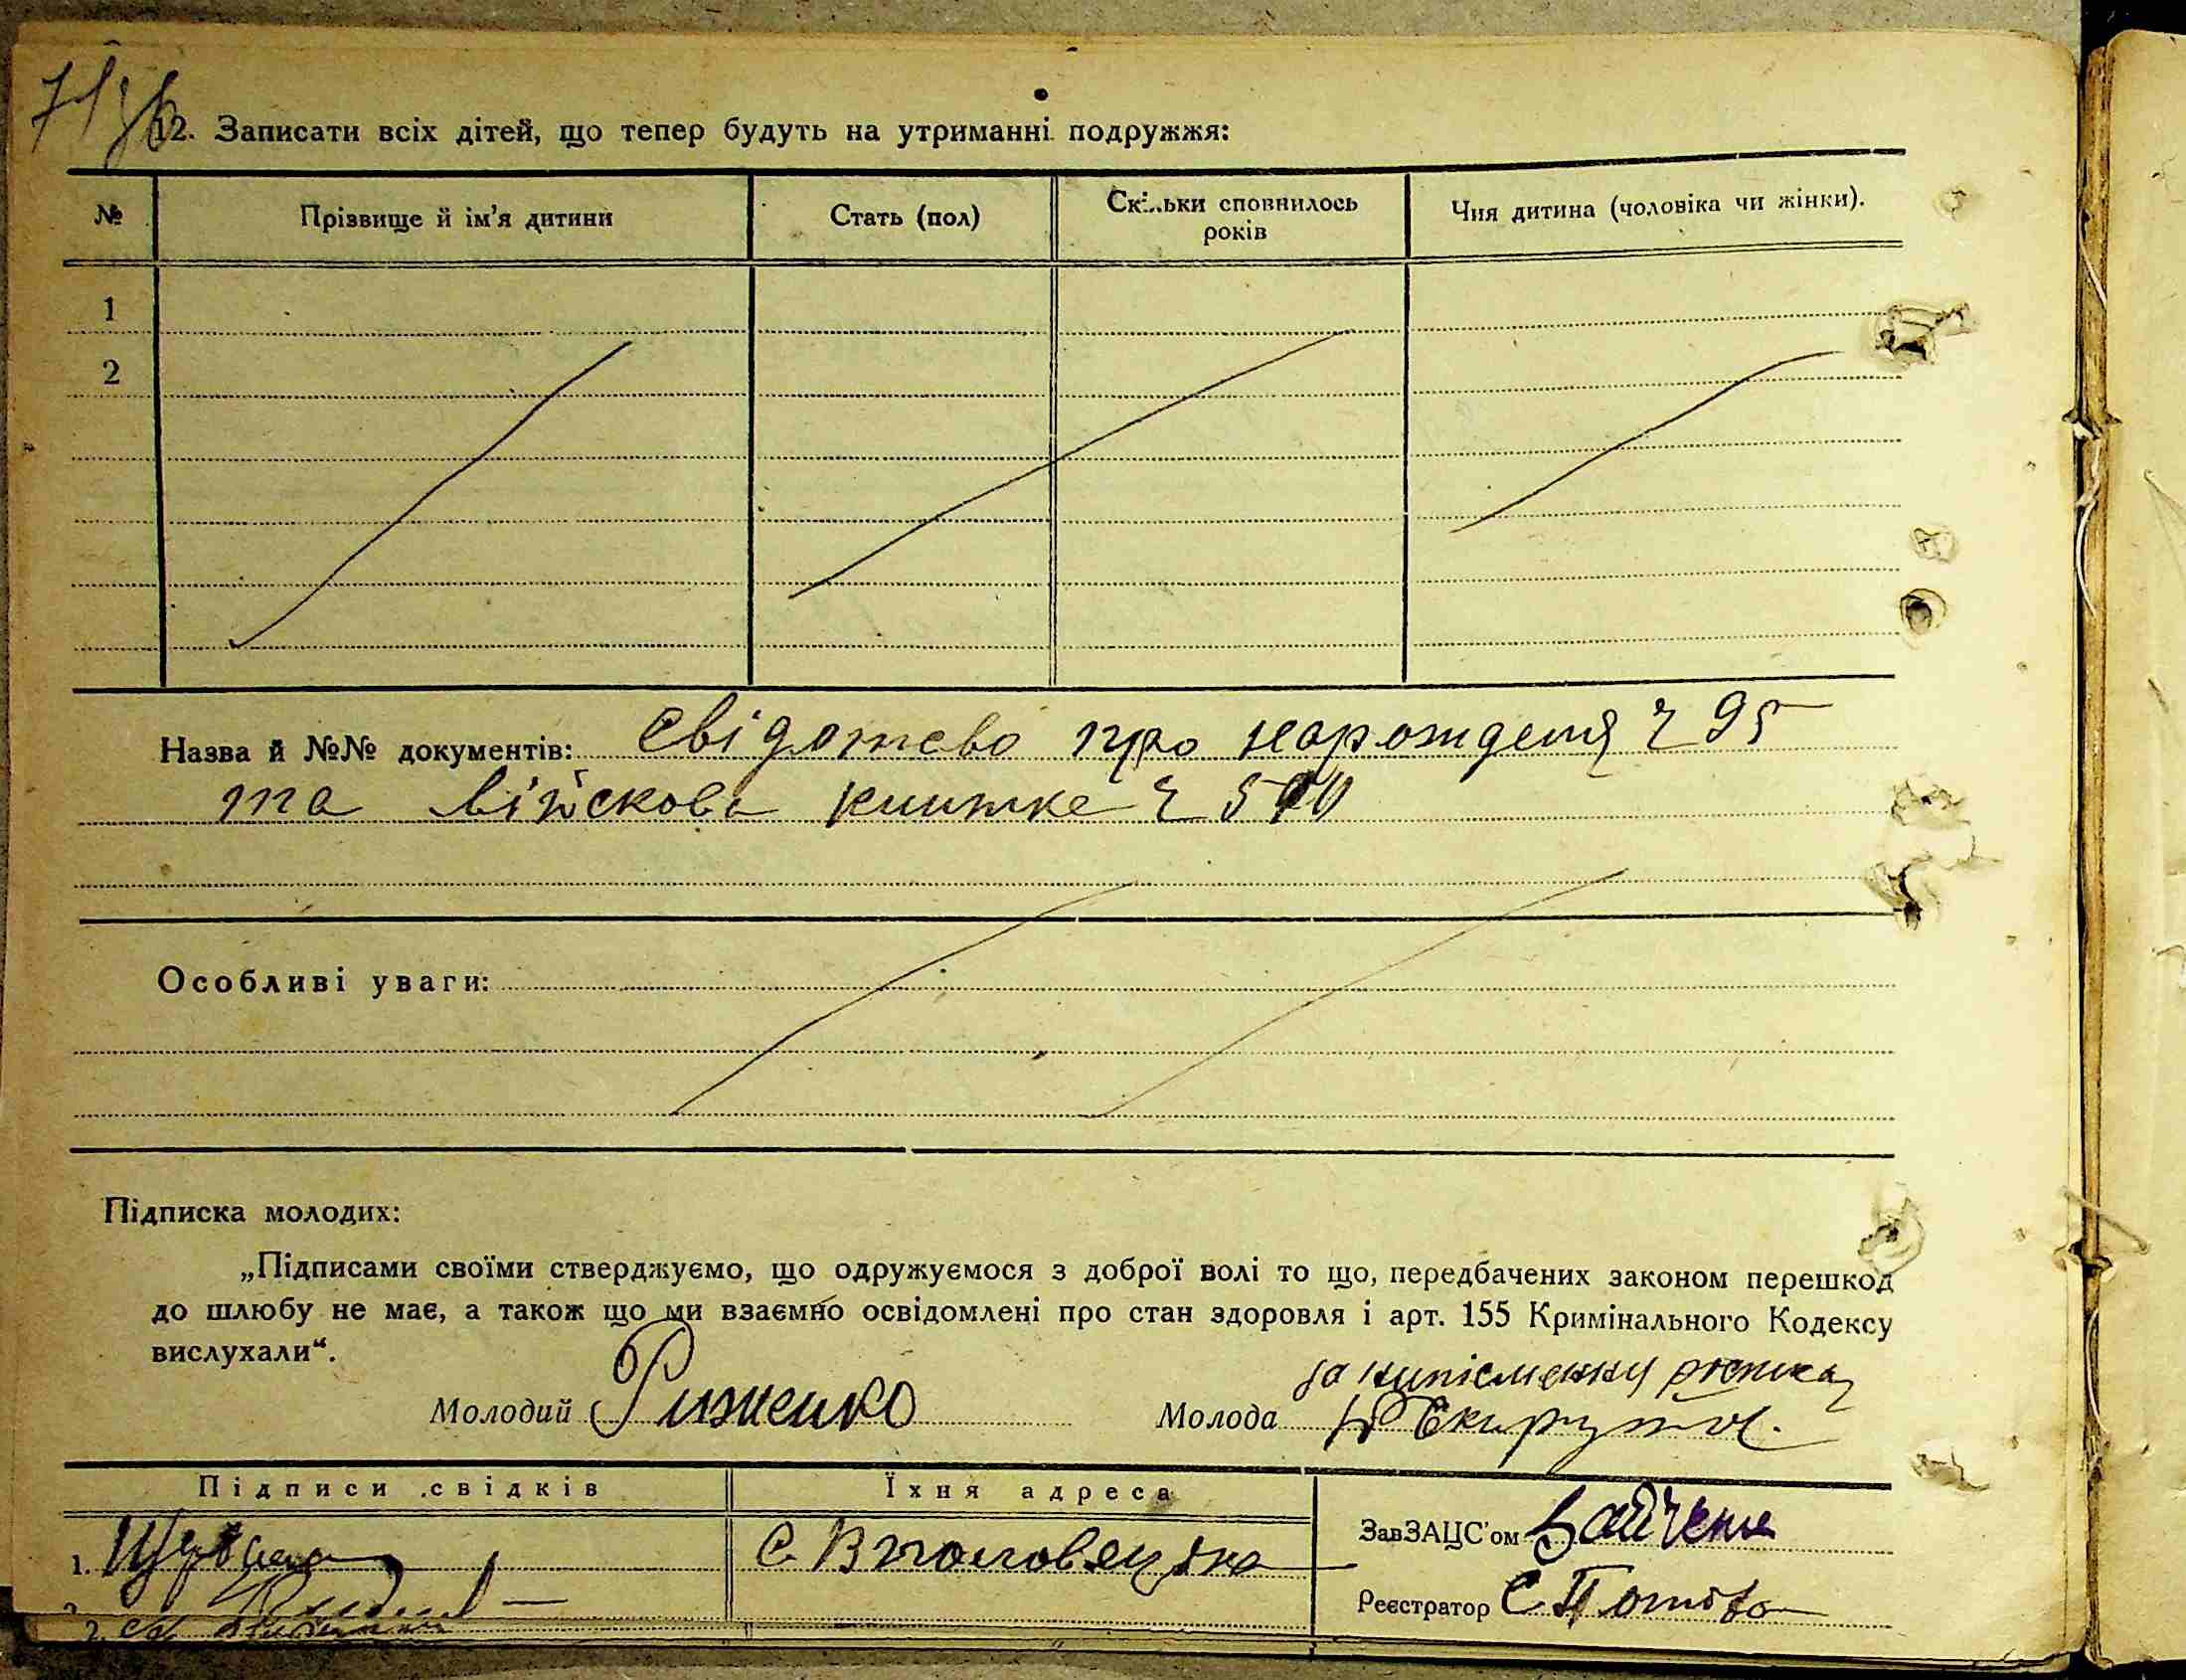 12. Записати всіх дітей, що тепер будуть на утриманні подружжя:
№ Прізвище й ім'я дитини Стать (пол) Скільки сповнилось років Чия дитина (чоловіка чи жінки).
1
2
Назва й №№ документів: свідотсво про нарождения ч 95
та військова книжке ч
Особливі уваги:
Підписка молодих:
„Підписами своїми стверджуємо, що одружуємося з доброї волі то що, передбачених законом перешкод
до шлюбу не має, а також що ми взаємно освідомлені про стан здоровля і арт. 155 Кримінального Кодексу
вислухали“.
за
Молодий Риженко Молода
Підписи свідків Їхня адреса
ЗавЗАЦС'ом
1. С.
Реєстратор С.
2.